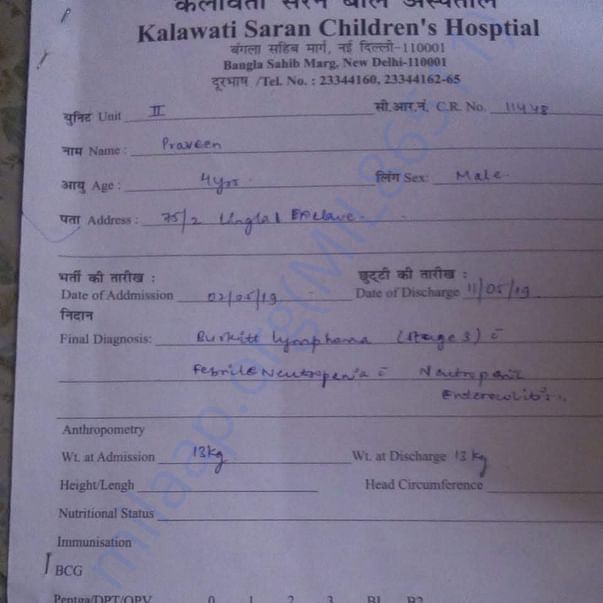 कलावती सरन बाल अस्पताल
Kalawati Saran Children's Hosptial
बंगला साहिब मार्ग, नई दिल्ली-110001
Bangla Sahib Marg, New Delhi-110001
दूरभाष /Tel. No. : 23344160, 23344162-65
युनिट Unit II सी.आर.नं. C.R. No. 11448
नाम Name : Praveen
आयु Age : 4yrs लिंग Sex: Male
पता Address : 75/2 Enclave
भर्ती की तारीख : छुट्टी की तारीख :
Date of Addmission 02/05/19 Date of Discharge 11/05/19
निदान
Final Diagnosis: Burkitt Lymphoma (Stage 3) c̄
Febrile Neutropenia c̄ Neutropenic
Enterocolitis
Anthropometry
Wt. at Admission 13kg Wt. at Discharge 13 kg
Height/Lengh Head Circumference
Nutritional Status
Immunisation
BCG
Pentga/DPT/OPV 0 1 2 3 B1 B2
milaap.org(MIL_863